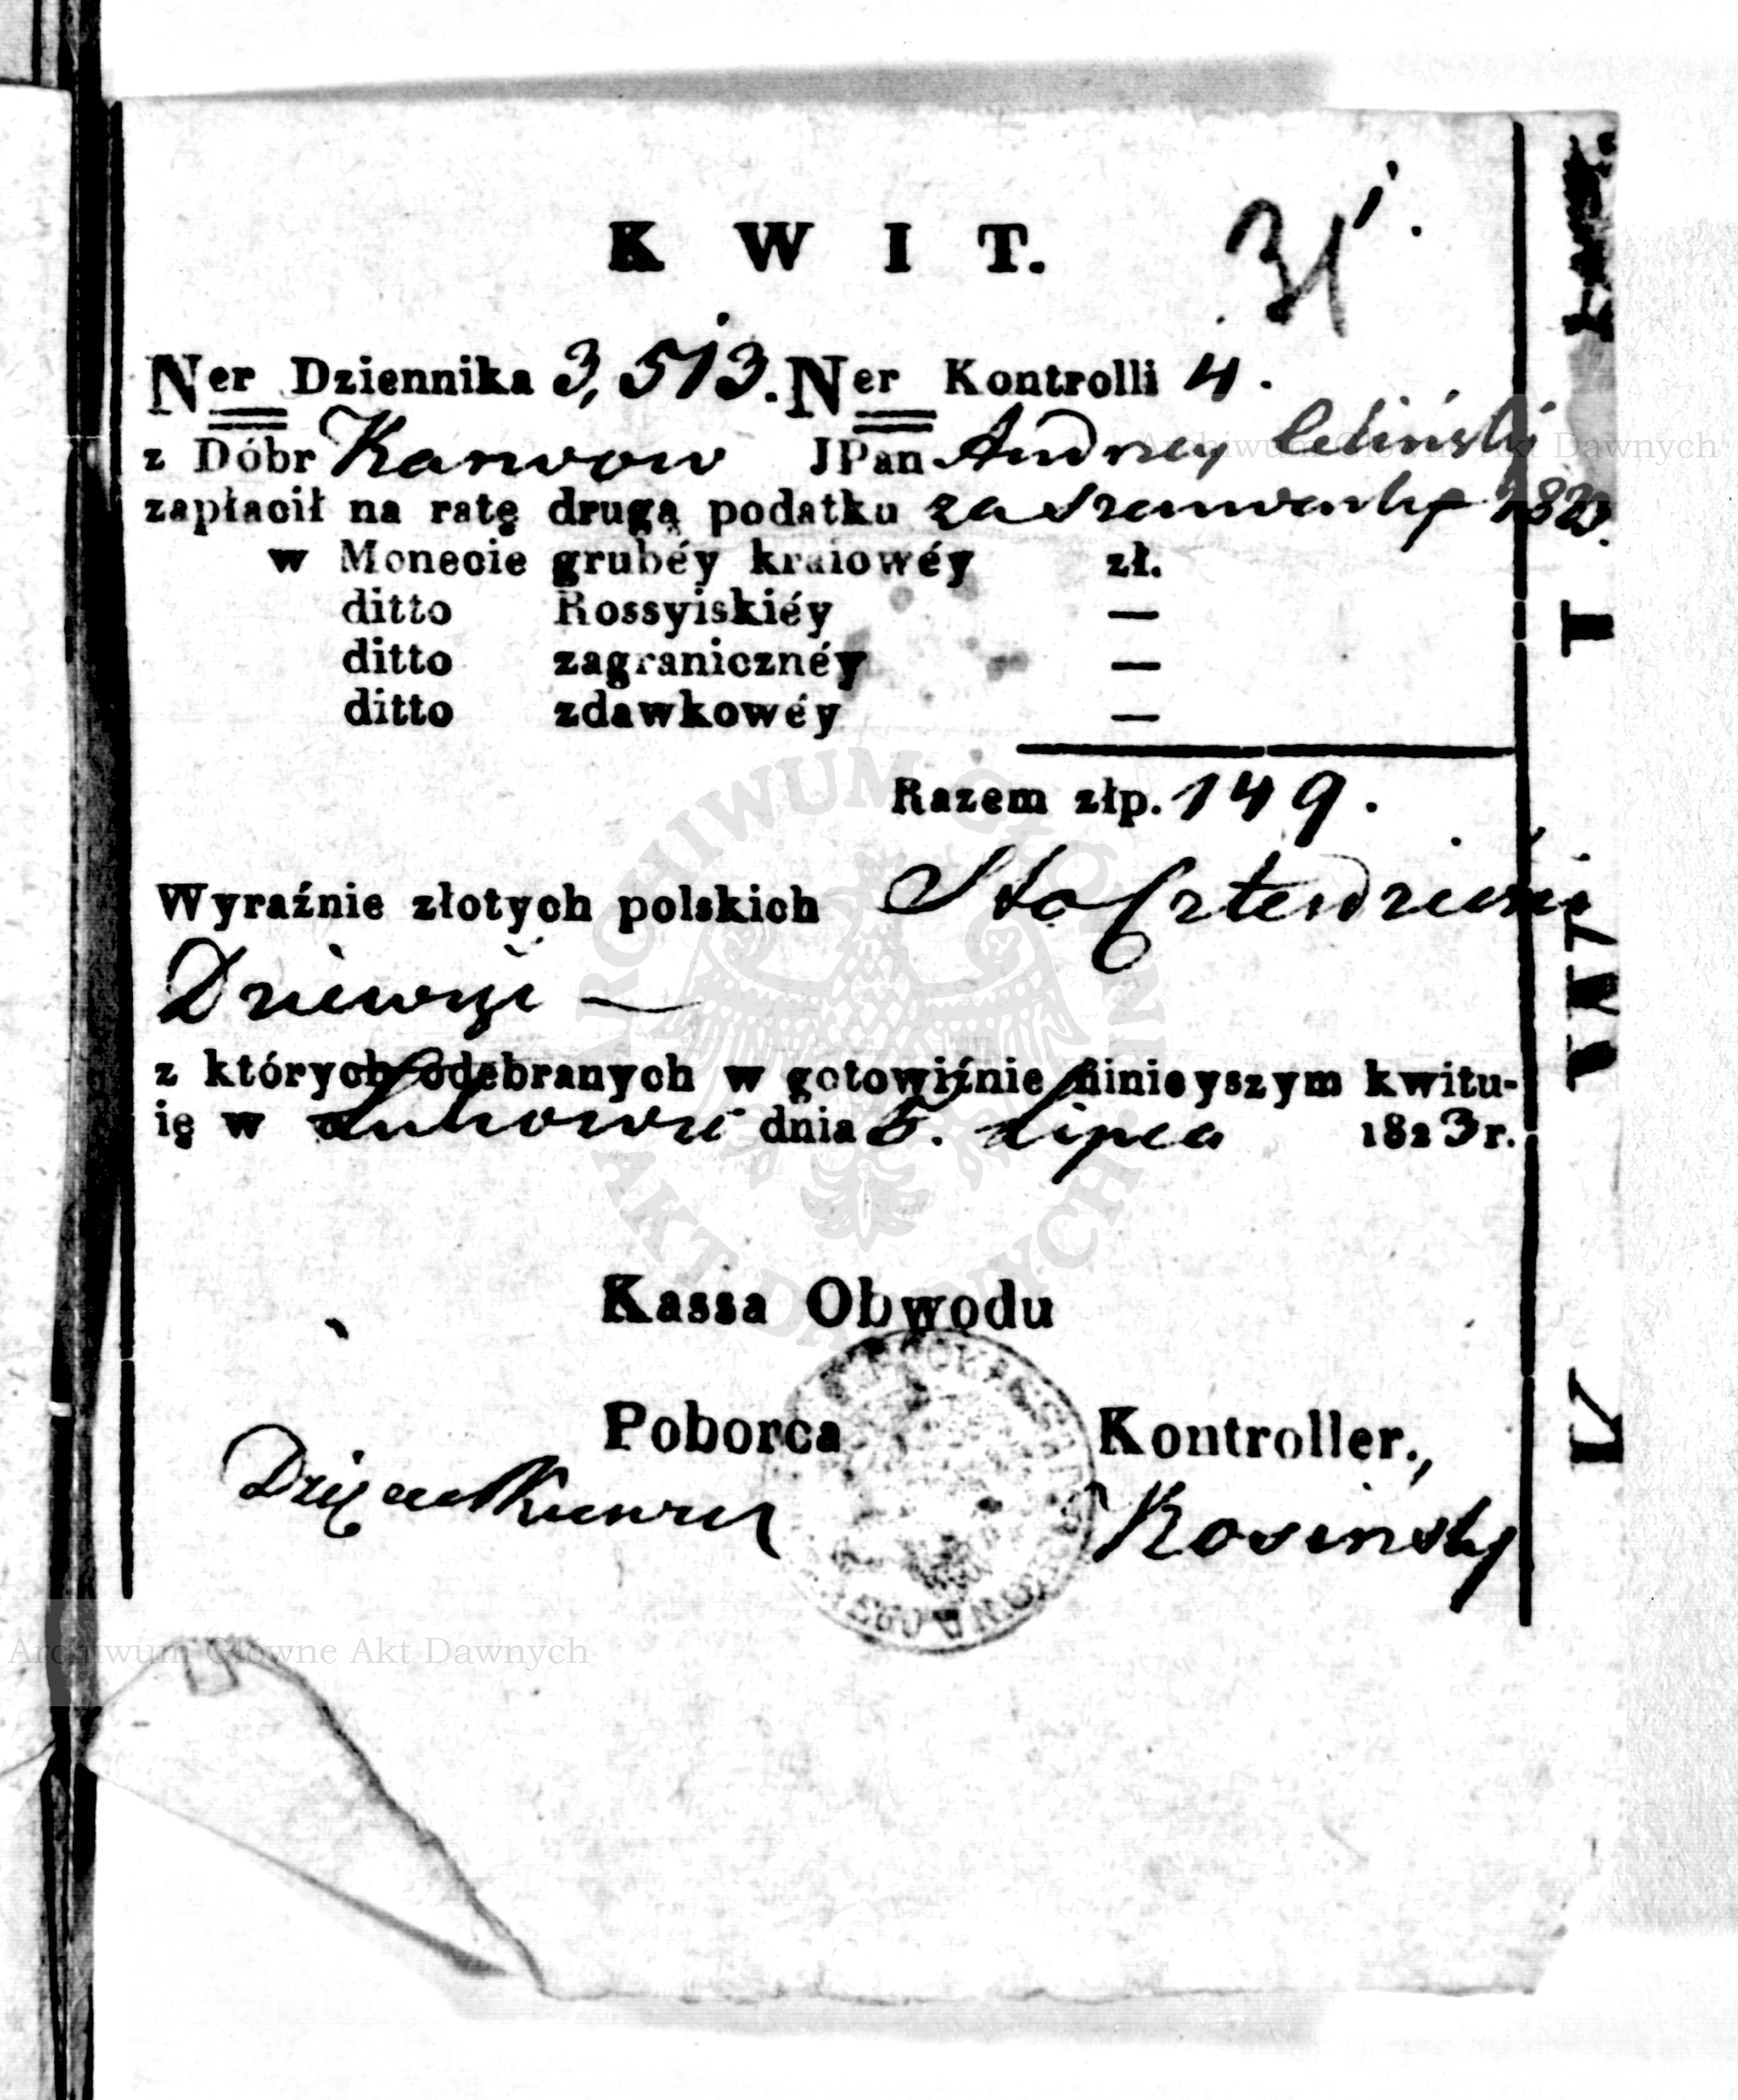 31
K W I T.
Ner Dziennika 3,513. Ner Kontrolli 4.
z Dóbr Karwow JPan Andrzey Celiński
zapłacił na ratę drugą podatku za szarwarkę 1823.
w Monecie grubéy kraiowéy zł.
ditto Rossyiskiéy —
ditto zagranicznéy —
ditto zdawkowéy —
Razem złp. 149.
Wyraźnie złotych polskich Sto Czterdzieści
Dziewięć —
z których odebranych w gotowiźnie ninieyszym kwitu-
ię w dnia 5. Lipca 1823 r.
Kassa Obwodu
Poborca Kontroller.,
Kosiński
K W I T
ARCHIWUM GŁÓWNE AKT DAWNYCH
Archiwum Główne Akt Dawnych
Archiwum Główne Akt Dawnych